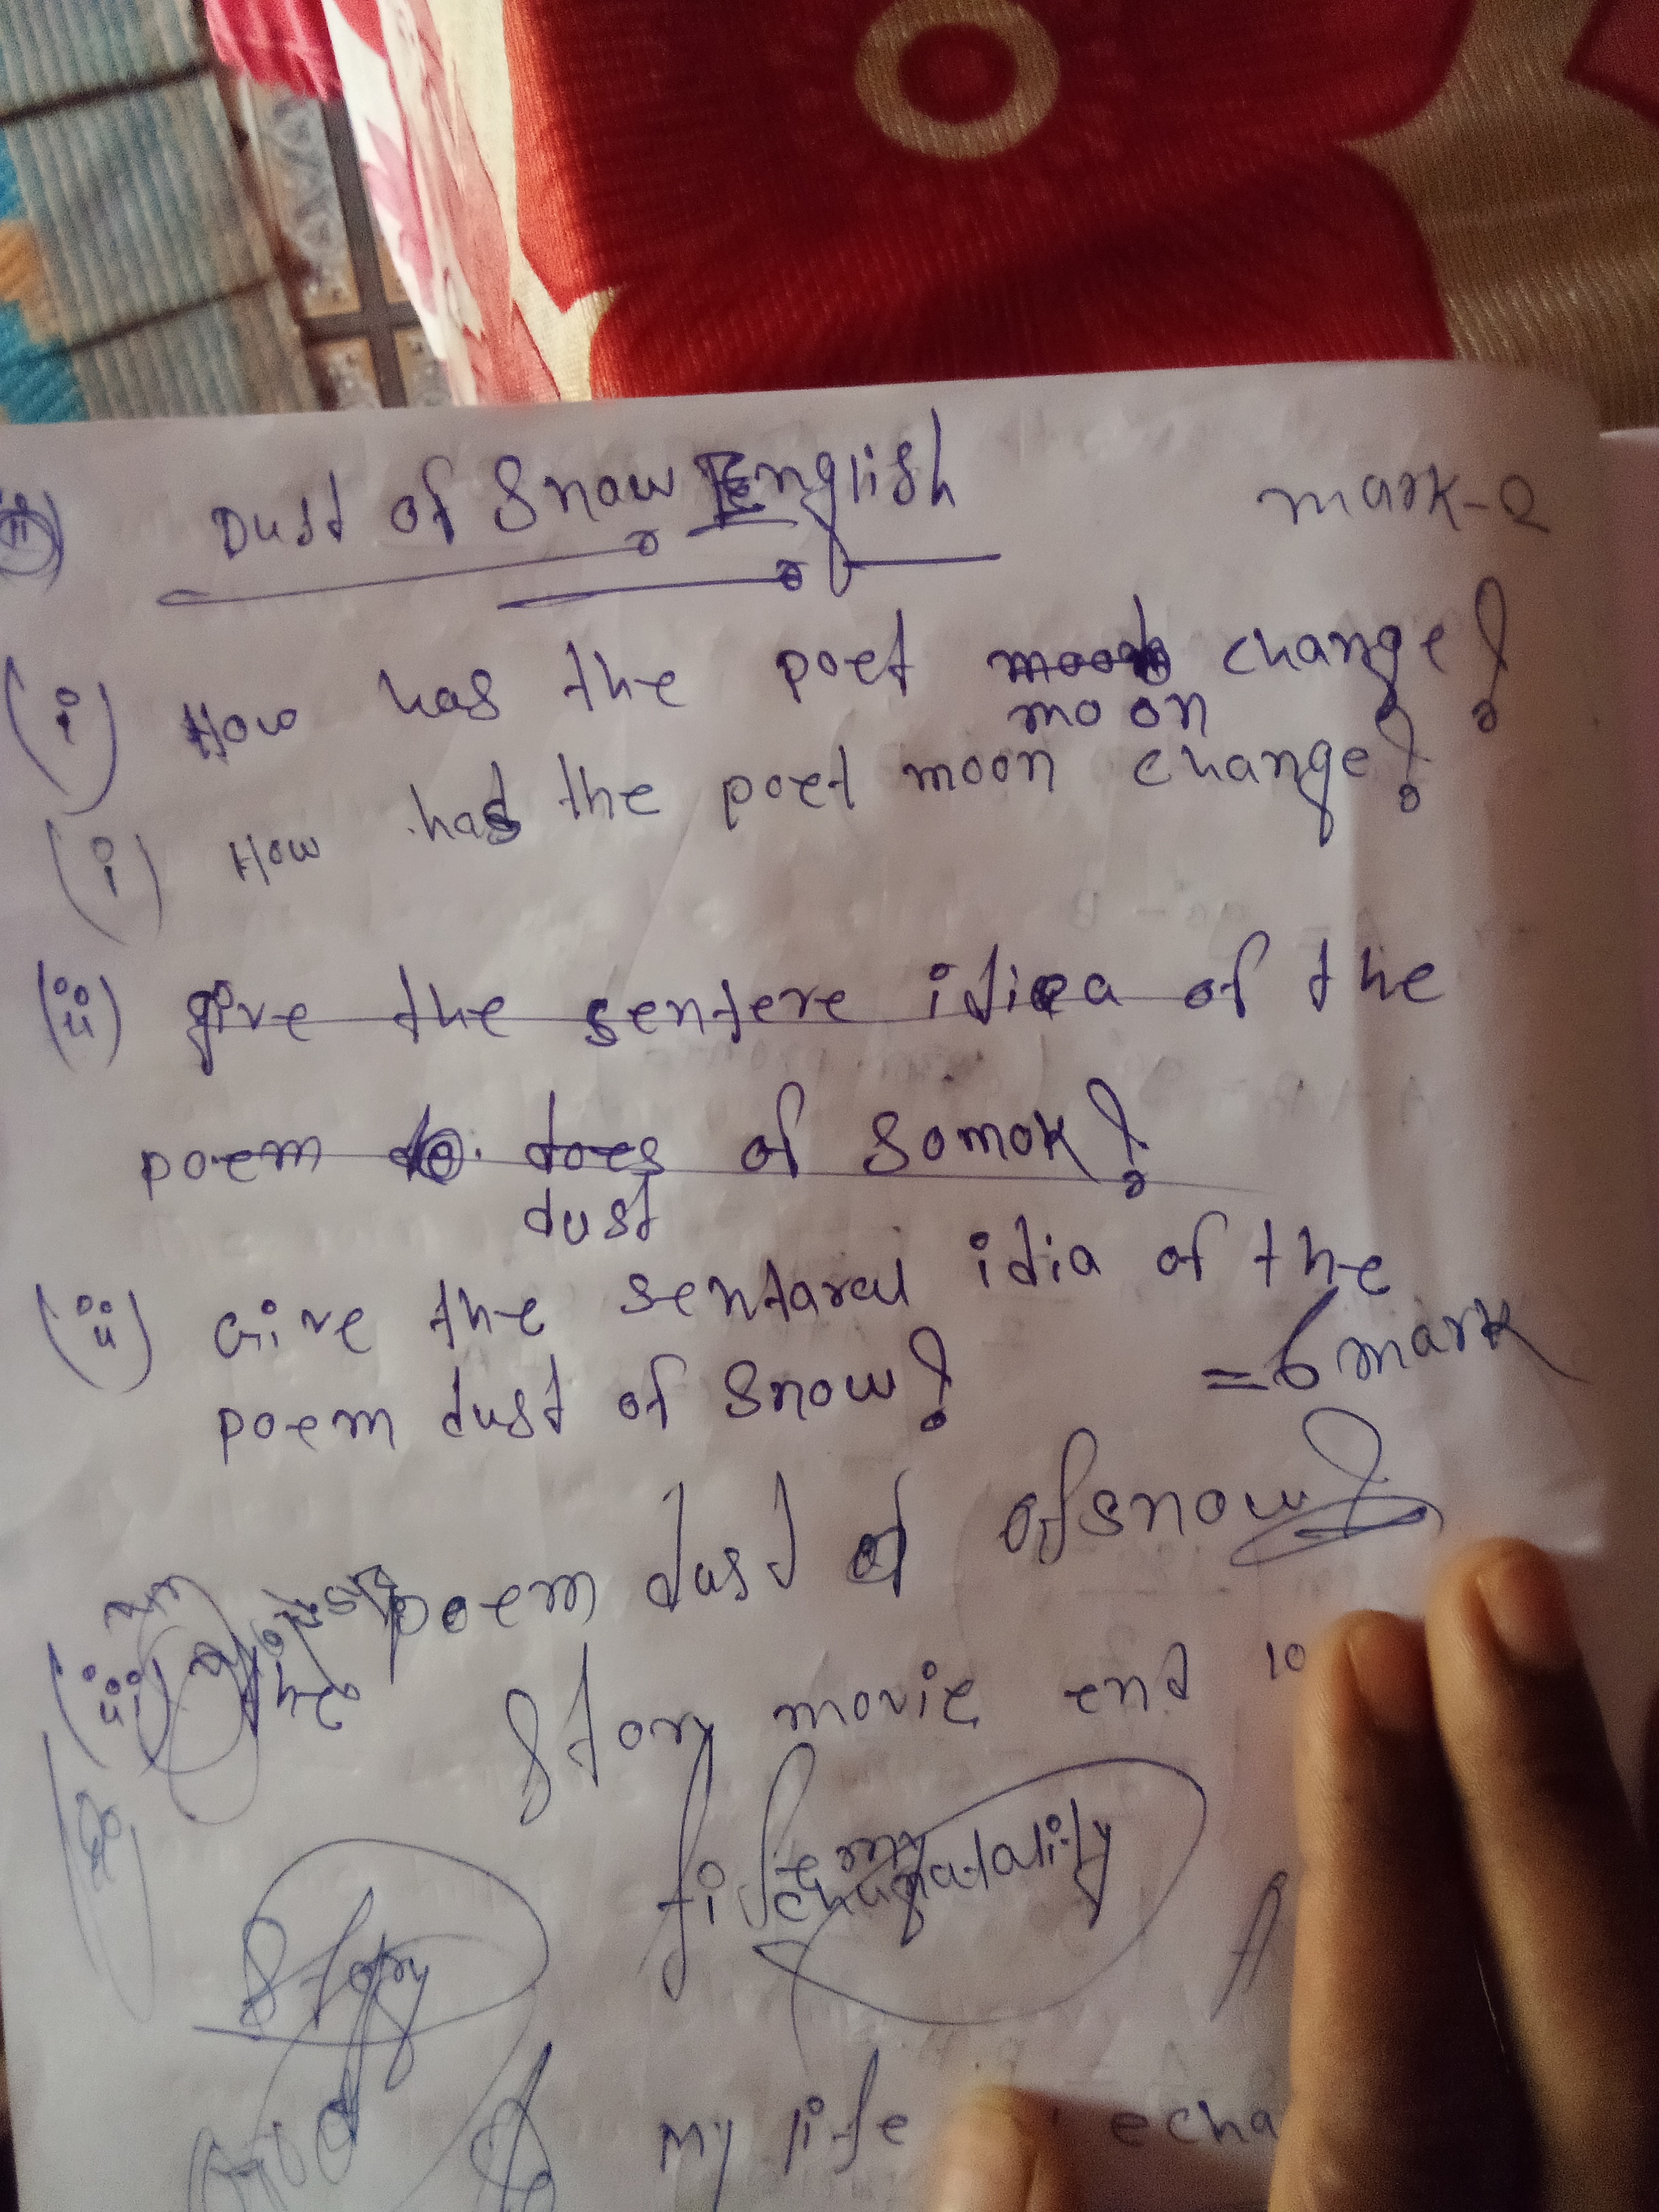 Dust of Snow English
mark-2
(i) How has the poet moon change?
(i) How has the poet moon change?
(ii) give the sentere idiea of the
poem does of Somok?
dust
(ii) Give the sentaral idia of the
poem dust of Snow? = 6 mark
poem dust of of snow?
(iii) the Story movie end 10
life my
Story
My life echa